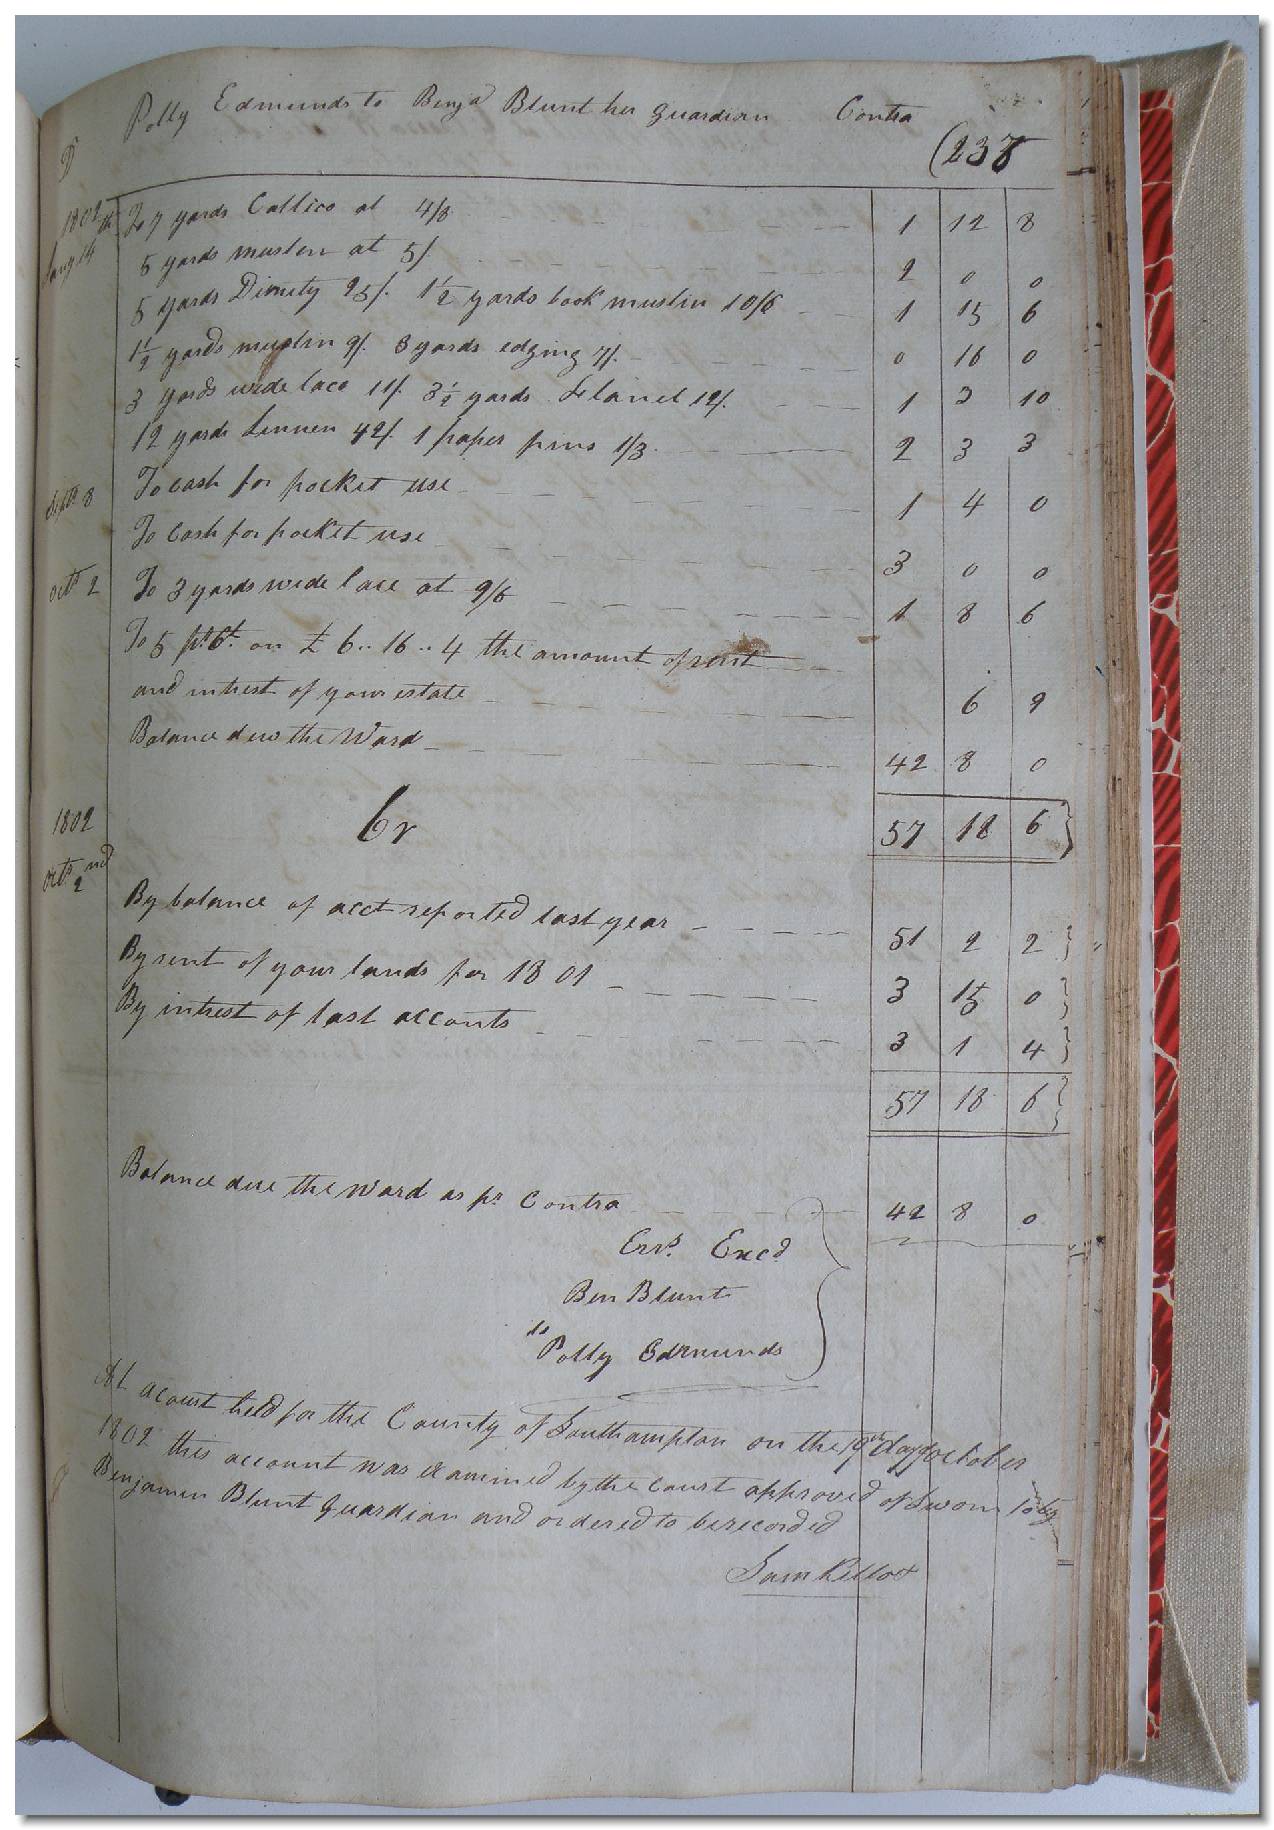 Dr Polly Edmunds to Benja Blunt her guardian Contra
(237
1802 To 7 yards Callico at 4/8 1 12 8
augt 14th 8 yards muslin at 5/ 2 0 0
5 yards Dimity 25/. 1 1/2 yards book muslin 10/6 1 15 6
1 1/2 yards muslin 9/. 3 yards edging 7/. 0 16 0
3 yards wide lace 11/. 3 1/2 yards Flanel 12/. 1 3 10
12 yards Linnen 42/. 1 paper pins 1/3 2 3 3
Septr 8 To cash for pocket use 1 4 0
To Cash for pocket use 3 0 0
octr 2 To 3 yards wide lace at 9/6 1 8 6
To 5 pr Ct. on £ 6..16..4 the amount of rent
and intrest of your estate 6 9
Balance due the Ward 42 8 0
1802 Cr 57 18 6
octr 2nd
By balance of acct reported last year 51 2 2
By rent of your lands for 1801 3 15 0
By intrest of last acconts 3 1 4
57 18 6
Balance due the Ward as pr Contra 42 8 0
Errs. Excd
Ben Blunt
to Polly Edmunds
At acourt held for the County of Southampton on the day of october
1802 this account was examined by the court approved of Sworn to by
Benjamin Blunt guardian and ordered to be recorded
Sam Kellow